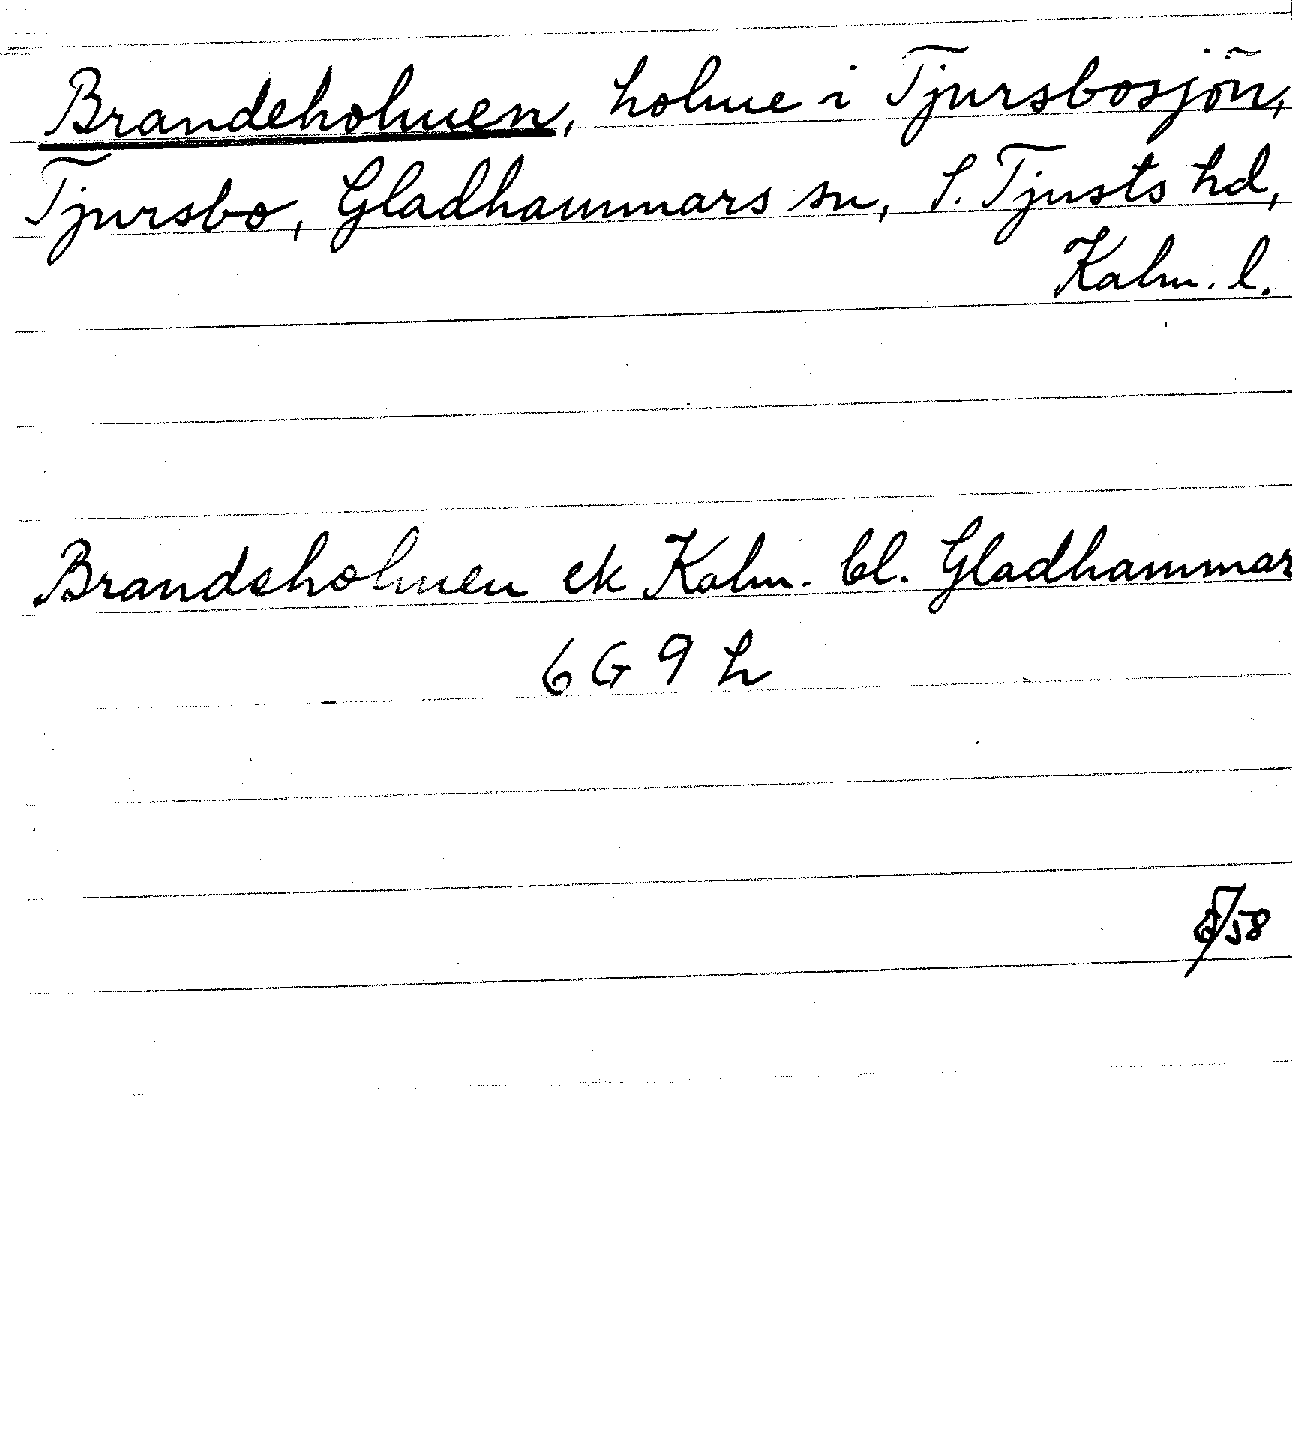 Brandeholmen, holme i Tjursbosjön,
Tjursbo, Gladhammars sn, S. Tjusts hd,
Kalm. l.
Brandeholmen ek Kalm. bl. Gladhammar
6 G 9 h